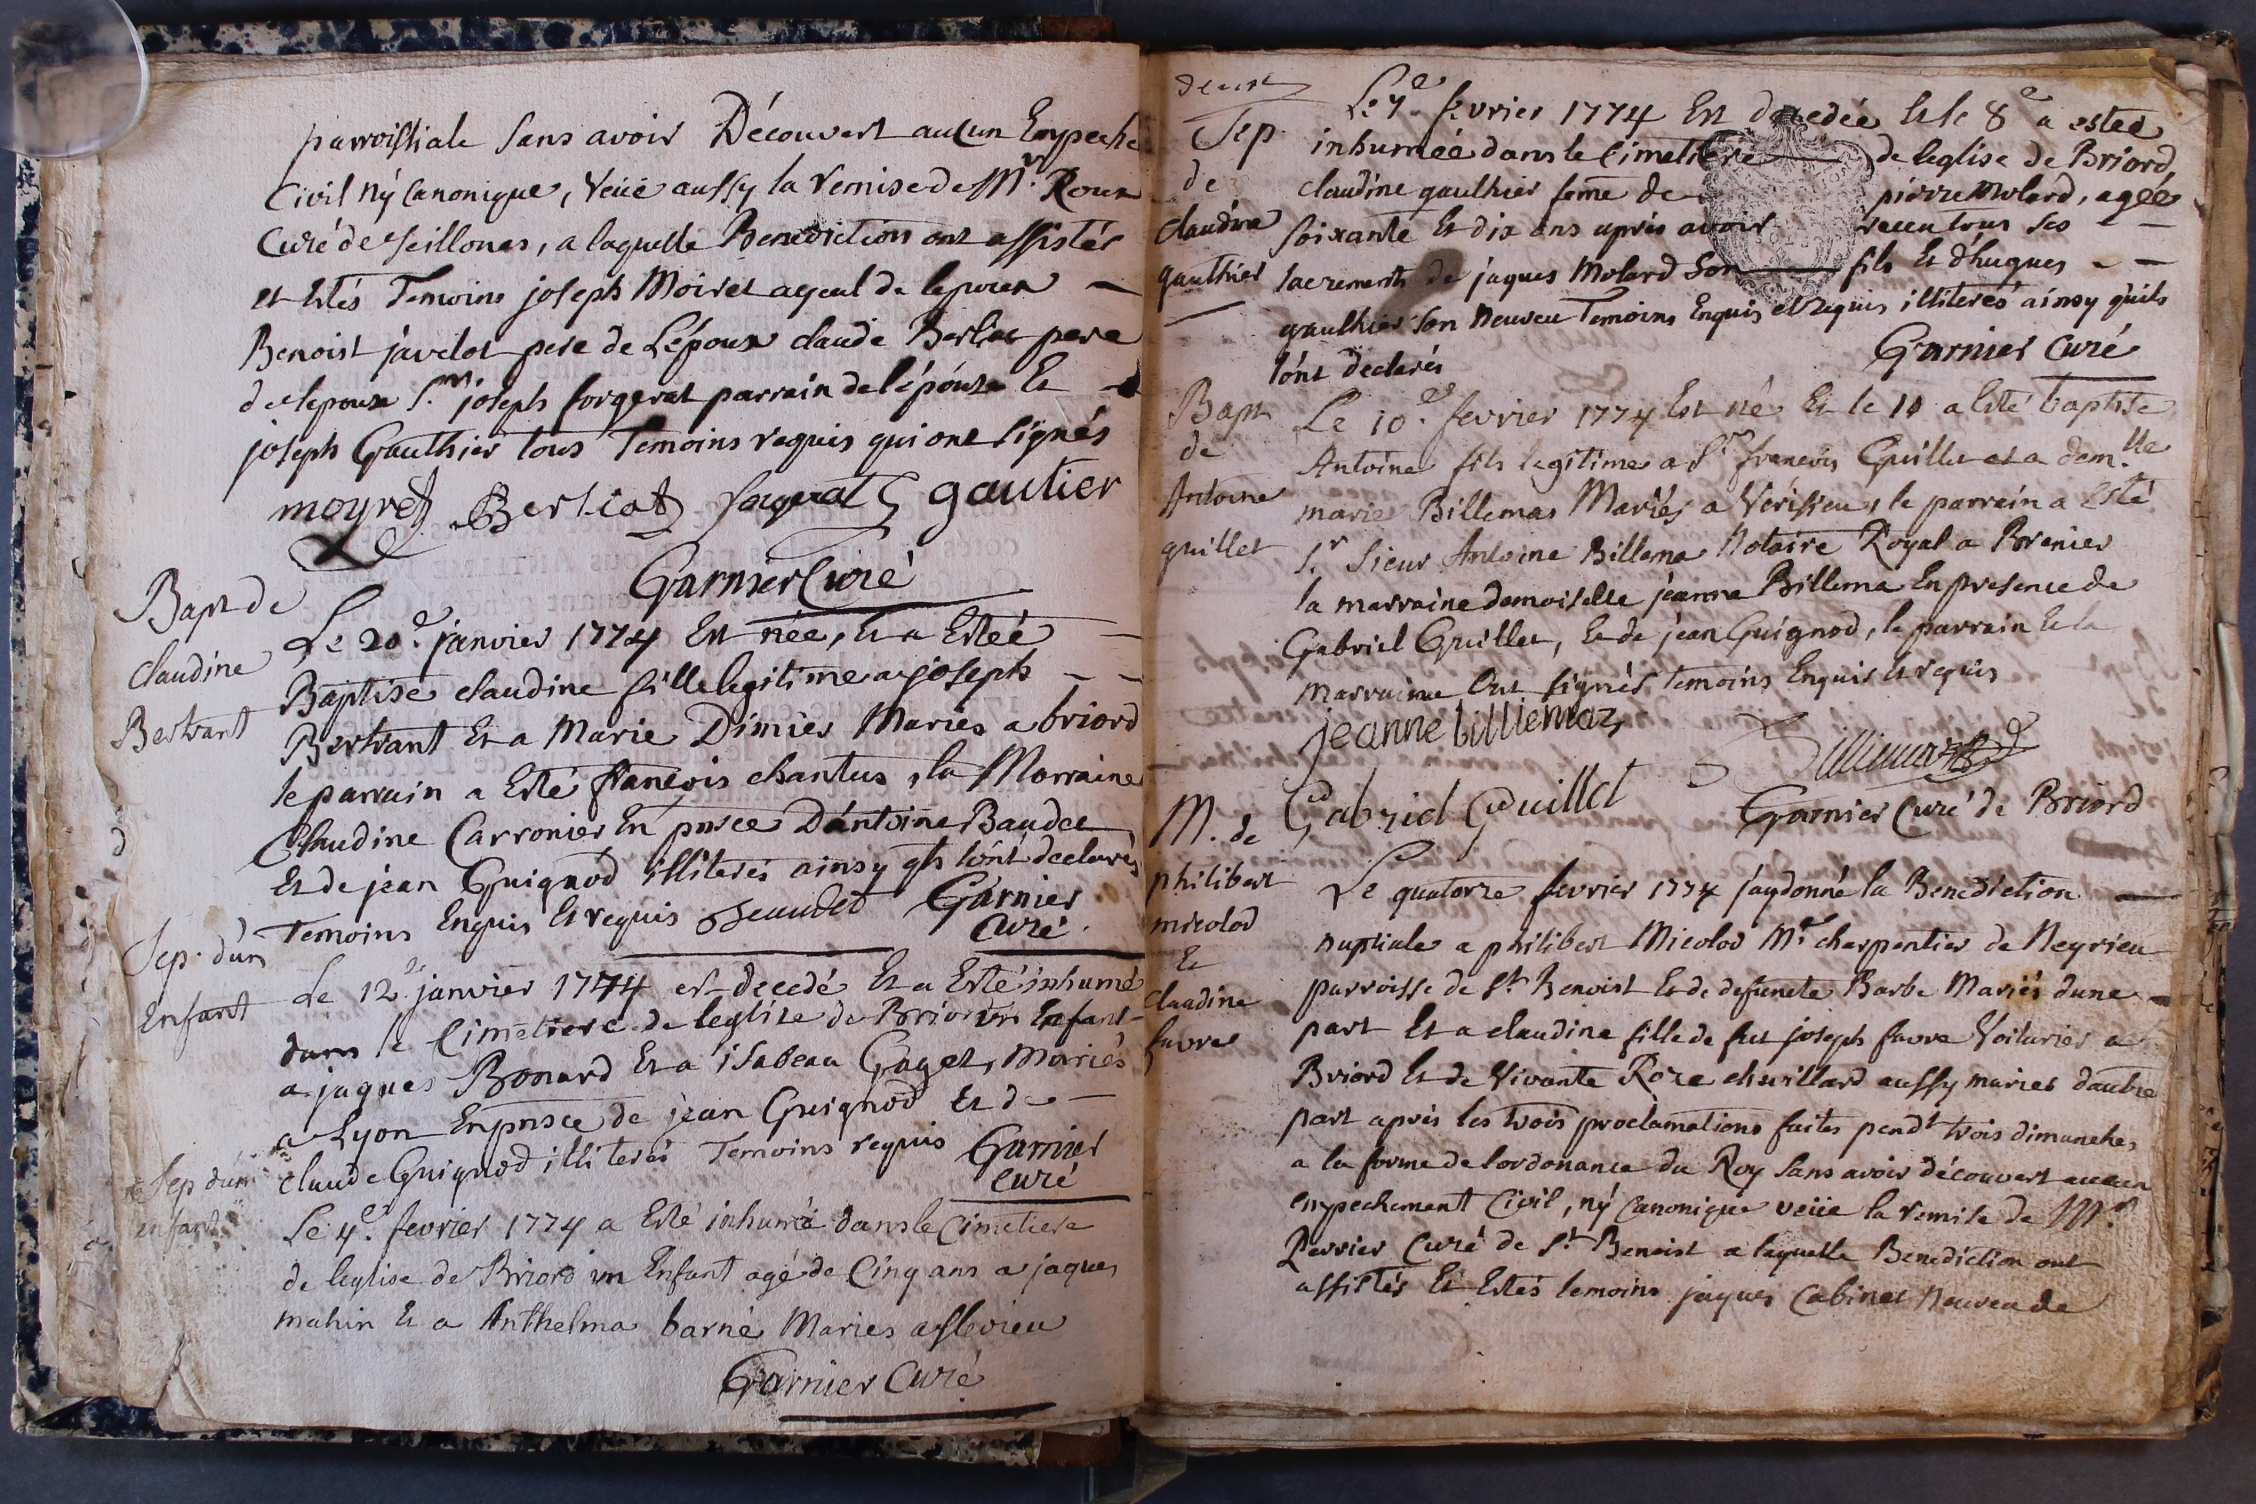 parroissiale sans avoir Découvert aucun Empeche
Civil ny Canonique, veüe aussy la remise de Mr. Roux
Curé de Seillonas, a laquelle Benediction ont assistés
et Estés Temoins joseph Moiret ayeul de lepoux
Benoist javelot pere de Lépoux claude Berliat pere
de lepouse Sr. joseph forgerat parrain de lépouse Et
joseph Gauthier tous Temoins requis qui ont signés
moyret Berliat gautier
Garnier Curé
Bapt de
claudine
Bertrant
Le 20e. janvier 1774 Est née, Et a Estée
Baptise claudine fille legitime a joseph
Bertrant Et a Marie Dimier Mariés a briord
le parrain a Esté francois chantus, la Marraine
Claudine Carronier En pnsce Dántoine Baudet
Et de jean Guignod illiterés ainsy qls lónt declarés
Temoins Enquis Et requis Beaudet Garnier
Curé
Sep. dún
Enfant
Le 12e. janvier 1774 est decedé Et a Esté inhumé
dans le Cimetiere de leglise de Briord un Enfant
a jaques Bonard Et a isabeau Gaget, Mariés
a Lyon En pnsce de jean Guignod Et de
claude Guignod illiterés Temoins requis Garnier
curé
Sep dún
enfant
Le 4e. fevrier 1774 a Esté inhumé dans le Cimetiere
de leglise de Briord un Enfant agé de Cinq ans a jaques
mahin Et a Anthelma barné Maries a flevieu
Garnier Curé
Sep.
de
claudine
gauthier
Le 7e. fevrier 1774 Est decedée Et le 8e a estee
inhumée dans le Cimetiere de leglise de Briord
claudine gaulhier feme de pierre Molard, agée
soixante Et dix ans après avoir receu tous ses
sacrements de jaques Molard Son fils Et d'hugues
gaulhier son neuveu Temoins Enquis et requis illiterés ainsy quils
lónt declarés
Garnier Curé
Bapt
de
Antoine
guillet
Le 10e. fevrier 1774 Est né Et le 11 a Esté baptise
Antoine fils legitime a Sr francois Guillet et a demlle
marie Billemas Mariés a Vérissieu, le parrain a Esté
Sr. Sieur Antoine Billema Notaire Royal a Brenier
la marraine demoiselle jeanne Billema En presence de
Gabriel Guillet, Et de jean Guignod, le parrain Et la
marraine Ont signés temoins Enquis Et requis
jeanne billiemaz
Billiemaz
Gabriel Guillet
Garnier Curé de Briord
M. de
philibert
micolod
Et
claudine
favre
Le quatorze fevrier 1774 jay donné la Benediction
nuptiale a philibert Micolod Me. charpentier de Neyrieu
parroisse de St. Benoist Et de defuncte Barbe Mariés dune
part Et a claudine fille de fut joseph favre Voiturier a
Briord Et de Vivante Roze chavillard aussy maries dautre
part après les trois proclamations faites pendt trois dimanches
a la forme de lordonance du Roy sans avoir découvert aucun
empechement Civil, ny Canonique veüe la remise de Mr.
Perrier Curé de St. Benoist a laquelle Benediction ont
assistés Et Estés temoins jaques Cabinet neuveu de